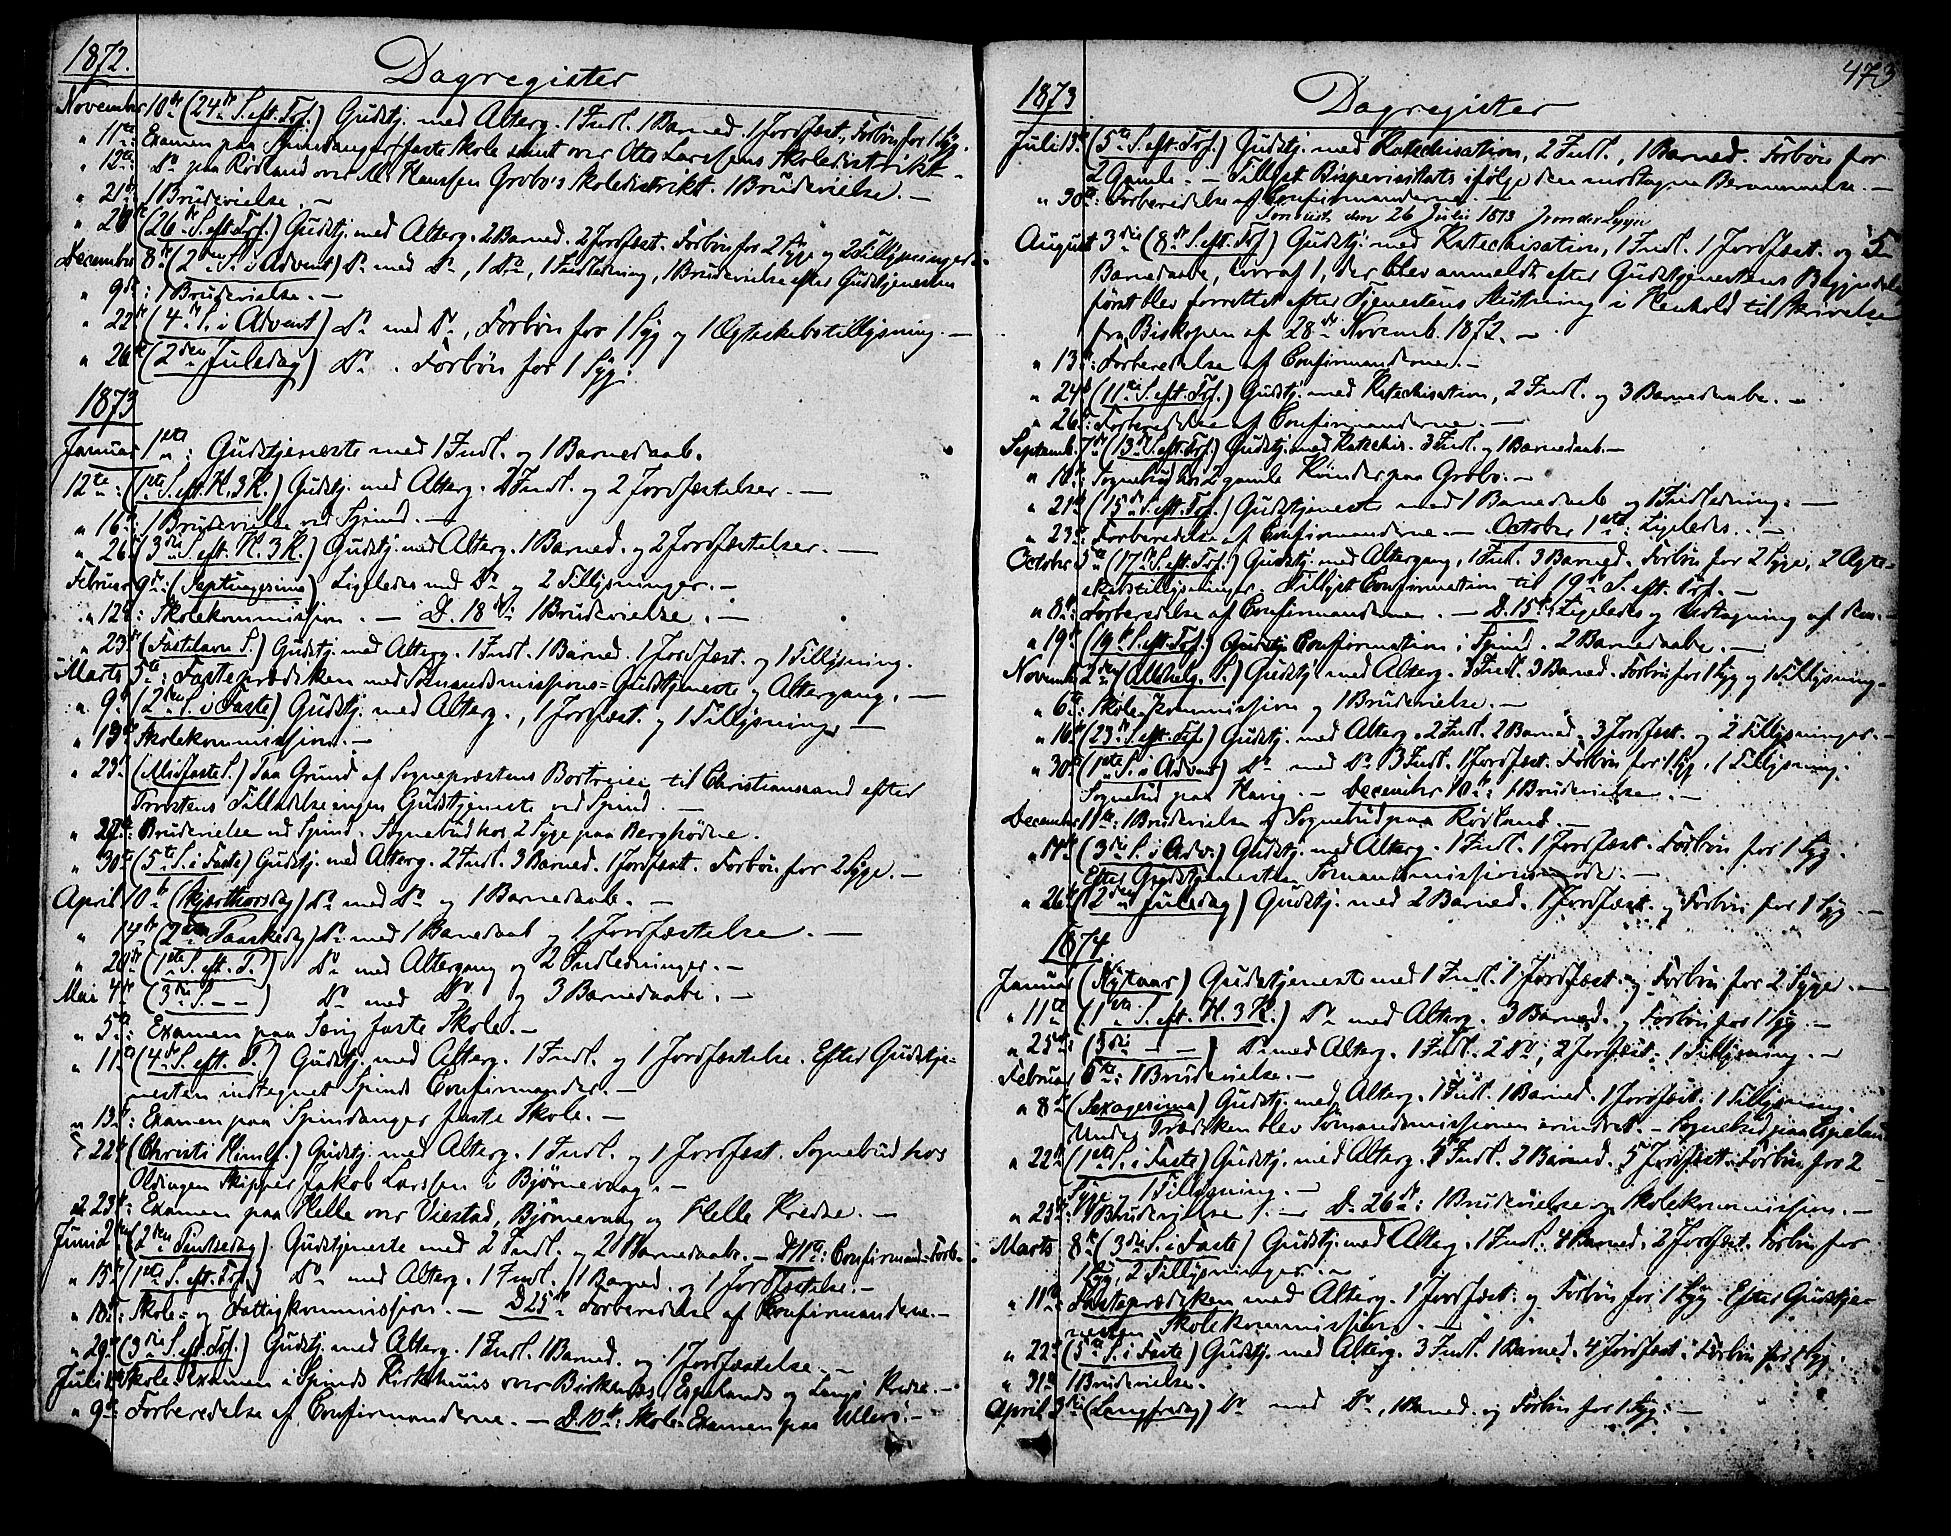 1872.
Dagregister
November 10de (24de S. eft. Trf.) Gudstj. med Alterg. 1 Indl. 1 Barned. 1 Jordfæst., Forbøn for 1 Syg.
" 11te Examen paa Spindanger faste Skole samt over Otto Larssens Skoledistrikt. -
" 12te Do paa Rødland over M. Hanssen Grobo's Skoledistrikt. 1 Brudevielse. -
" 21de 1 Brudevielse. -
(26de S. eft. Trf.) Gudstj. med Alterg. 2 Barned. 2 Jordfæst. Forbøn for 2 Syge og 2 Tillysninger.
December 8de (2den S. i Advent) Do med Do, 1 Do, 1 Indledning, 1 Brudevielse efter Gudstjenesten
" 9de: 1 Brudevielse. -
" 22de (4de S. i Advent) Do med Do, Forbøn for 1 Syg og 1 Ægteskabstillysning. -
" 26de (2den Juledag) Do. Forbøn for 1 Syg.
1873
Januar 1ste: Gudstjeneste med 1 Indl. og 1 Barnedaab.
12te: (1ste S. eft. H. 3 K.) Gudstj. med Alterg. 2 Indl. og 2 Jordfæstelser. -
" 16de: 1 Brudevielse ved Spind. -
" 26de (3die S. eft. H. 3 K.) Gudstj. med Alterg. 1 Barned. og 2 Jordfæstelser. -
Februar 9de: (Septuagesima) Ligeledes med Do og 2 Tillysninger. -
" 12te: Skolekommission. - D. 18de: 1 Brudevielse. -
" 23de (Fastelavns S.) Gudstj. med Alterg. 1 Indl. 1 Barned. 1 Jordfæst. og 1 Tillysning.
Marts 5te: Fasteprædiken med Sømandsmissions-Gudstjeneste og Altergang. -
" 9de (2den S. i Faste) Gudstj. med Alterg., 1 Jordfæst. og 1 Tillysning. -
" 19de Skolekommission. -
" 23de (Midfaste S.) Paa Grund af Sognepræstens Bortreise til Christianssand efter
Provstens Tilladelse ingen Gudstjeneste ved Spind. -
" 27de Brudevielse ved Spind. Sognebud hos 2 Syge paa Berghødne.
" 30te (5te S. i Faste) Gudstj. med Alterg. 2 Indl. 3 Barned. 1 Jordfæst. Forbøn for 2 Syge. -
April 10de (Skjærthorsdag) Do med Do og 1 Barnedaab. -
" 14de (2den Paaskedag) Do med 1 Barnedaab og 1 Jordfæstelse. -
" 20de (1ste S. eft. P.) Do med Altergang og 2 Indledninger. -
Mai 4de (3die S. - -) Do med Do og 3 Barnedaabe. -
" 5te: Examen paa faste Skole. -
" 11te (4de S. eft. P.) Gudstj. med Alterg. 1 Indl. og 1 Jordfæstelse. Efter Gudstje-
nesten indtegnet Spinds Confirmander. -
" 13de: Examen paa Spindanger faste Skole. -
" 22de (Christi Himlf.) Gudstj. med Alterg. 1 Indl. og 1 Jordfæst. Sognebud hos
Oldingen Skipper Jakob Larssen i Bjørnevaag. -
" 23de: Examen paa Helle over Viestad, Bjørnevaag og Helle Kredse. -
Juni 2den (2den Pintsedag) Gudstjeneste med 2 Indl. og 2 Barnedaabe. - D. 11te: Confirmand-Forb.
" 15de (1ste S. eft. Trf.) Do med Alterg. 1 Indl. 1 Barned. og 1 Jordfæstelse. -
" 18de: Skole- og Fattigkommission. - D. 25de Forberedelse af Confirmanderne. -
" 29de (3die S. eft. Trf.) Gudstj. med Alterg. 1 Indl. 1 Barned. og 1 Jordfæstelse. -
Juli Skole-Examen i Spinds Kirkehuus over Birkenæs, Espelands og Kredse. -
" 9de: Forberedelse af Confirmanderne. - D. 10de: Skole-Examen paa Ullerø. -
473
1873
Dagregister
Juli 13de (5te S. eft. Trf.) Gudstj. med Katechisation, 2 Indl., 1 Barned. Forbøn for
2 Gamle. - Tillyst Bispevisitats ifølge den modtagne Berammelse. -
" 30te: Forberedelse af Confirmanderne. -
den 26 Juli 1873
August 3die (8de S. eft. Trf.) Gudstj. med Katechisation, 1 Indl. 1 Jordfæst. og 5
Barnedaabe, hvoraf 1, der blev anmeldt efter Gudstjenestens Begyndelse
først blev forrettet efter Tjenestens Slutning i Henhold til Skrivelse
fra Biskopen af 28de Novemb. 1872. -
" 13de: Forberedelse af Confirmanderne. -
" 24de (11te S. eft. Trf.) Gudstj. med Katechisation, 2 Indl. og 3 Barnedaabe. -
" 26de: Forberedelse af Confirmanderne. -
Septemb. 7de (13de S. eft. Trf.) Gudstj. med Katechis. 3 Indl. og 1 Barnedaab. -
" 10de: Sognebud hos 2 gamle Kvinder paa Grobo. -
" 21de (15de S. eft. Trf.) Gudstjeneste med 1 Barnedaab og 1 Indledning. -
" 23de: Forberedelse af Confirmanderne. - October 1ste: Ligeledes. -
October 5te (17de S. eft. Trf.) Gudstj. med Altergang, 1 Indl. 3 Barned. Forbøn for 2 Syge, 2 Ægte-
skabstillysninger. Tillyst Confirmation til 19de S. eft. Trf. -
" 8de: Forberedelse af Confirmanderne. - D. 15de: Ligeledes og Udtagning af
" 19de (19de S. eft. Trf.) Gudstj. Confirmation i Spind. 2 Barnedaabe. -
November 2den (Allehelg. S.) Gudstj. med Alterg. 3 Indl. 3 Barned. Forbøn for 1 Syg og 1 Tillysning. -
" 6te: Skolekommission og 1 Brudevielse. -
" 16de (23de S. eft. Trf.) Gudstj. med Alterg. 2 Indl. 2 Barned. 3 Jordfæst. og 2 Tillysninger. -
" 30te (1ste S. i Advent) Do med Do 3 Indl. 1 Jordfæst. Forbøn for 1 Syg, 1 Tillysning.
Sognebud paa Havig. - December 10de: 1 Brudevielse. -
December 11te: 1 Brudevielse og Sognebud paa Rødland. -
" 14de (3die S. i Adv.) Gudstj. med Alterg. 1 Indl. 1 Jordfæst. Forbøn for 1 Syg.
Efter Gudstjenesten Sømandsmissionsmøde. -
" 26de (2den Juledag) Gudstj. med 2 Barned. 1 Jordfæst. og Forbøn for 1 Syg -
1874
Januar (Nytaar) Gudstjeneste med 1 Indl. 1 Jordfæst. og Forbøn for 2 Syge. -
" 11te (1ste S. eft. H. 3 K.) Do med Alterg. 3 Barned. og Forbøn for 1 Syg. -
" 25de: (3die - -) Do med Alterg. 1 Indl. 2 Do, 2 Jordfæst. 1 Tillysning. -
Februar 6te: 1 Brudevielse. -
" 8de (Sexagesima) Gudstj. med Alterg. 1 Indl. 1 Barned. 1 Jordfæst. 1 Tillysning.
Under Prædiken blev Sømandsmissionen erindret. - Sognebud paa Espeland
" 22de (1ste S. i Faste) Gudstj. med Alterg. Indl. 2 Barned. 5 Jordfæst. Forbøn for 2
Syge og 1 Tillysning. -
" 23de: 1 Brudevielse. - D. 26de: 1 Brudevielse og Skolekommission. -
Marts 8de (3die S. i Faste) Gudstj. med Alterg. 1 Indl. 4 Barned. 2 Jordfæst. Forbøn for
1 Syg, 2 Tillysninger. -
" 11te: Fasteprædiken med Alterg. 1 Jordfæst. og Forbøn for 1 Syg. Efter Gudstje-
nesten Skolekommission. -
" 22de (5te S. i Faste) Gudstj. med Alterg. 3 Indl. 1 Barned. 4 Jordfæst. Forbøn for 1 Syg.
" 31te 1 Brudevielse.
April 3die (Langfredag) Do med Do, 1 Barned. og Forbøn for 1 Syg. -